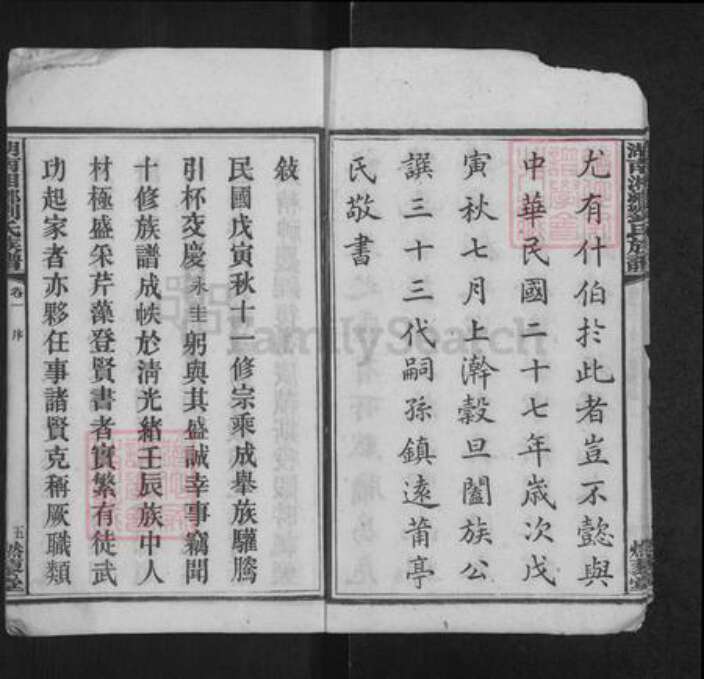 尤有什伯於此者豈不懿與
中華民國二十七年歲次戊
寅秋七月上澣穀旦闔族公
譔三十三代嗣孫鎮遠莆亭
氏敬書
湖南湘鄉劉氏族譜
敍
民國戊寅秋十一修宗乘成舉族驩騰
引杯交慶永圭躬與其盛誠幸事竊聞
十修族譜成帙於淸光緒壬辰族中人
材極盛采芹藻登賢書者實繁有徒武
功起家者亦夥任事諸賢克稱厥職類
湖南湘鄉劉氏族譜
卷一 序
五
FamilySearch